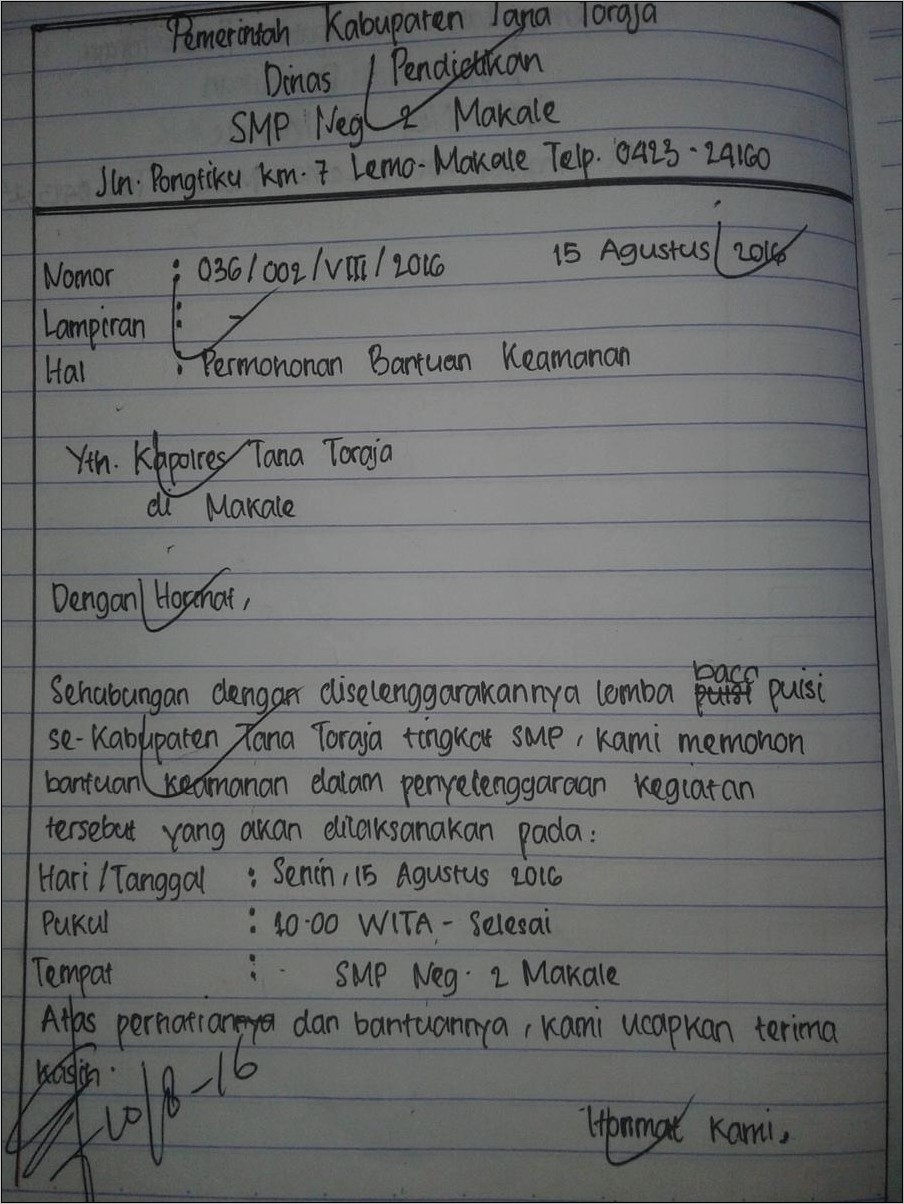 Pemerintah Kabupaten Tana Toraja
Dinas Pendidikan
SMP Neg 2 Makale
Jln. Pongtiku km. 7 Lemo-Makale Telp. 0423-24160
Nomor : 036/002/VIII/2016 15 Agustus 2016
Lampiran : -
Hal : Permohonan Bantuan Keamanan
Yth. Kapolres Tana Toraja
di Makale
Dengan Hormat,
Sehubungan dengan diselenggarakannya lomba baca puisi
se-Kabupaten Tana Toraja tingkat SMP, kami memohon
bantuan keamanan dalam penyelenggaraan kegiatan
tersebut yang akan dilaksanakan pada:
Hari/Tanggal : Senin, 15 Agustus 2016
Pukul : 10.00 WITA - Selesai
Tempat : SMP Neg. 2 Makale
Atas perhatiannya dan bantuannya, kami ucapkan terima
kasih.
Hormat Kami,